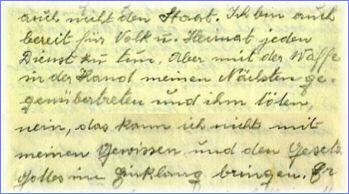 auch nicht den Staat. Ich bin auch
bereit für Volk u. Heimat jeden
Dienst zu tun. Aber mit der Waffe
in der Hand meinen Nächsten ge-
genübertreten und ihm töten,
nein, das kann ich nicht mit
meinen Gewissen und den Gesetz
Gottes im Einklang bringen. Er